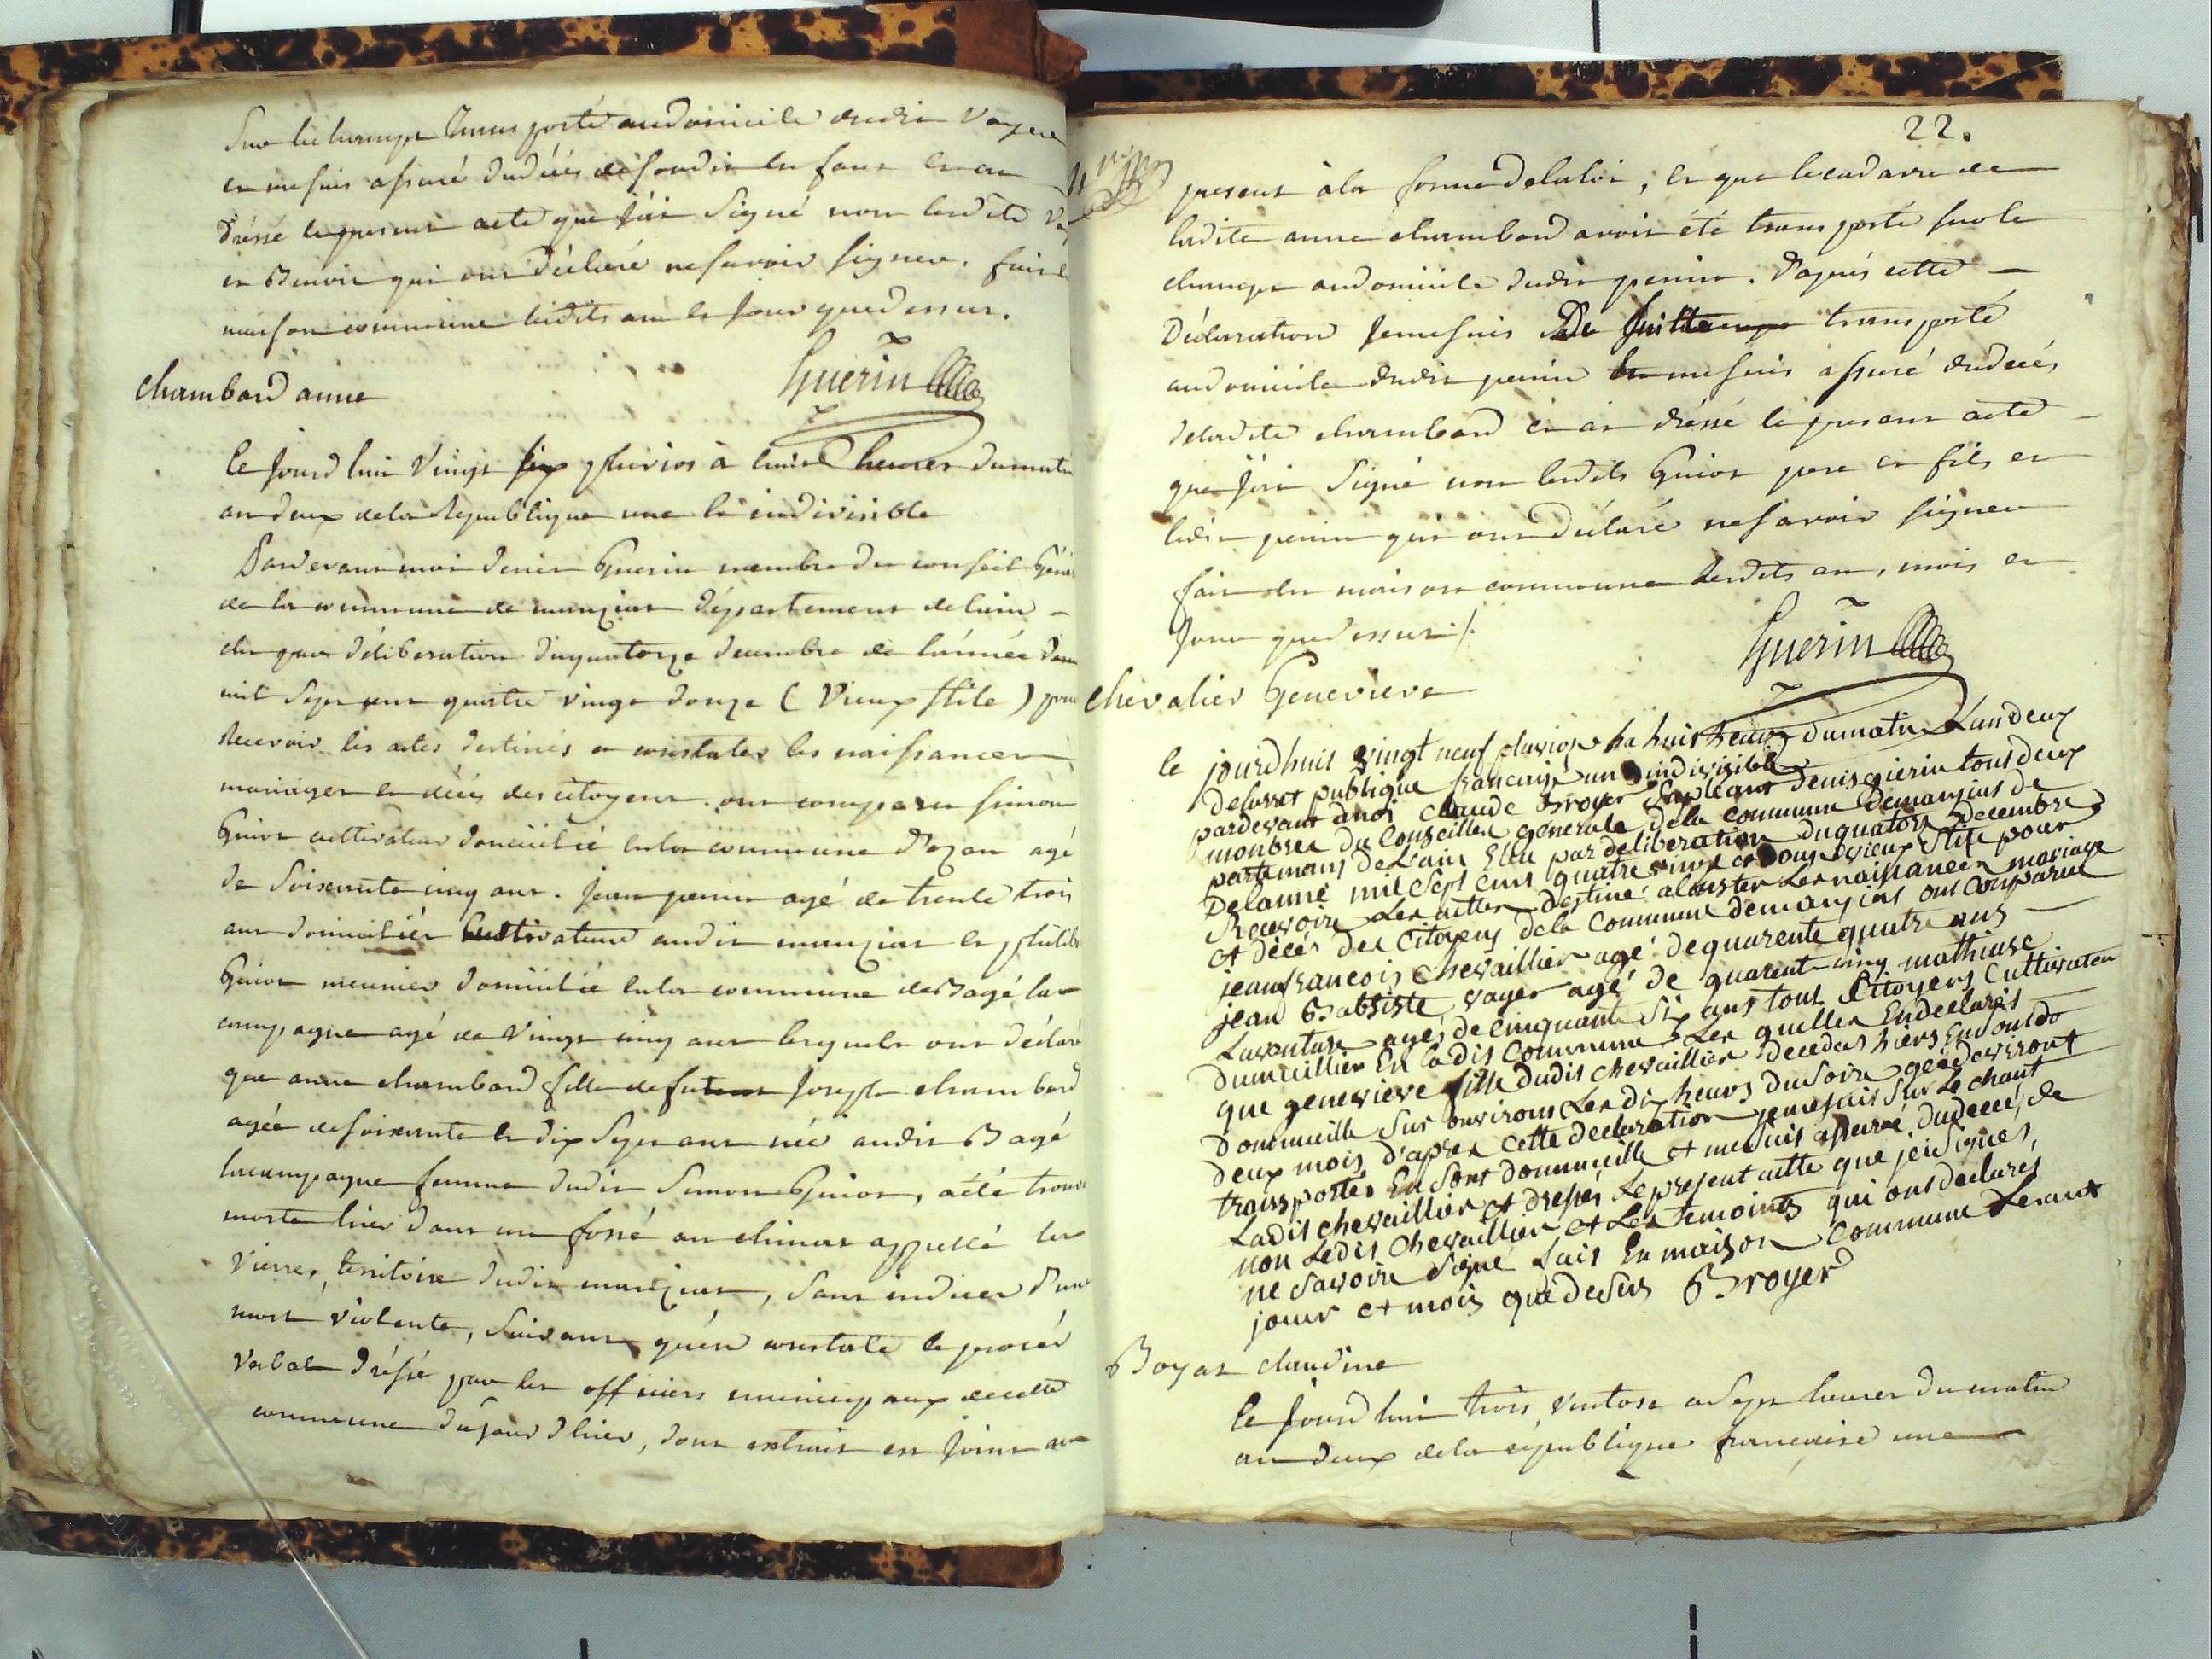 Sur le champ Transporté au domicile dudit Voye
et me suis assuré du décés dudit enfant et en
dressé le present acte que j'ai signé non lesdits
et Benoit qui ont déclaré ne savoir signer. fait
maison commune lesdits an et jour que dessus.
Guerin
chambard anne
le jourd'hui vingt six pluvios à huit heures du matin
an deux de la Republique une et indivisible
Pardevant moi denis Guerin membre du conseil Géné
de la commune de manziat département de l'ain
élu par déliberation du quatorze decembre de l'année
mil sept cent quatre vingt douze (vieux stile) pour
Recevoir les actes destinés a constater les naissances
mariages et décés des citoyens. ont comparu simon
Guiot cultivateur domicilié en la commune d'ozan agé
de soixante cinq ans. jean penin agé de trente trois
ans domicilié cultivateur audit manziat et philib
Guiot meunier domicilié en la commune de Bagé la
campagne agé de vingt cinq ans lesquels ont déclaré
que anne chambard fille de feu Joseph chambard
agée de soixante et dix sept ans née audit Bagé
lacampagne femme dudit Simon Guiot, a été trouvé
morte hier dans un fossé au climat appellé les
vierres, territoire dudit manziat, sans indices d'une
mort violente, suivant qu'en constate le procés
verbal dréssé par les officiers municipaux de cette
commune du jour d'hier, dont extrait est joint au
22.
present à la forme de la loi, et que le cadavre de
ladite anne chambard avoit été transporté sur le
champ au domicile dudit penin. d'aprés cette
déclaration je me suis transporté
au domicile dudit penin me suis assuré du décés
deladite chambard et ai dressé le present acte
que j'ai signé non lesdits Guiot pere et fils et
ledit penin qui ont déclaré ne savoir signer
fait en maison commune lesdits an, mois et
jour que dessus /.
Guerin
chevalier Genevieve
le jourdhuit vingt neuf pluviose ha huit heures du matin Landeux
delarrepublique francaise un indivisible
pardevant moi claude Broyer Supleant denis gierin tous deux
monbres du Conseilles générale dela commune demanzias de
partemans de Lain Elu par deliberation du quatorz decembre
Delanné mil sept cens quatre vingt et douze vieux Stile pour
Recevoire les actes destiné a conster les naissances mariage
et décés des Citoyens dela Commune demanzias ont comparue
jean francois chevaillier agé de quarente quatre ans
jean Babtiste voyer agé de quarente cinq mathiuse
Laventure agés de cinquante si ans tous Citoyens Cultivateu
dumicillier En ladis commune Les quelles Endeclarés
que genevieve fille dudis chevaillier decedes hiers En
dommicille sur onvirons les dix heures du soire
deux mois d'apres cette declaration je me suis sur Le chant
transportés En sont dommicille et me suis assurré du décé de
Ladis chevaillier et dressés Le present acte que jeié signés
non Ledis chevaillier et Les temoints qui ons declarés
ne savoire signé fais En maison commune Les
jour et mois que desus Broyer
Boyat claudine
le jourd'hui trois ventose a sept heures du matin
an deux de la république françoise une